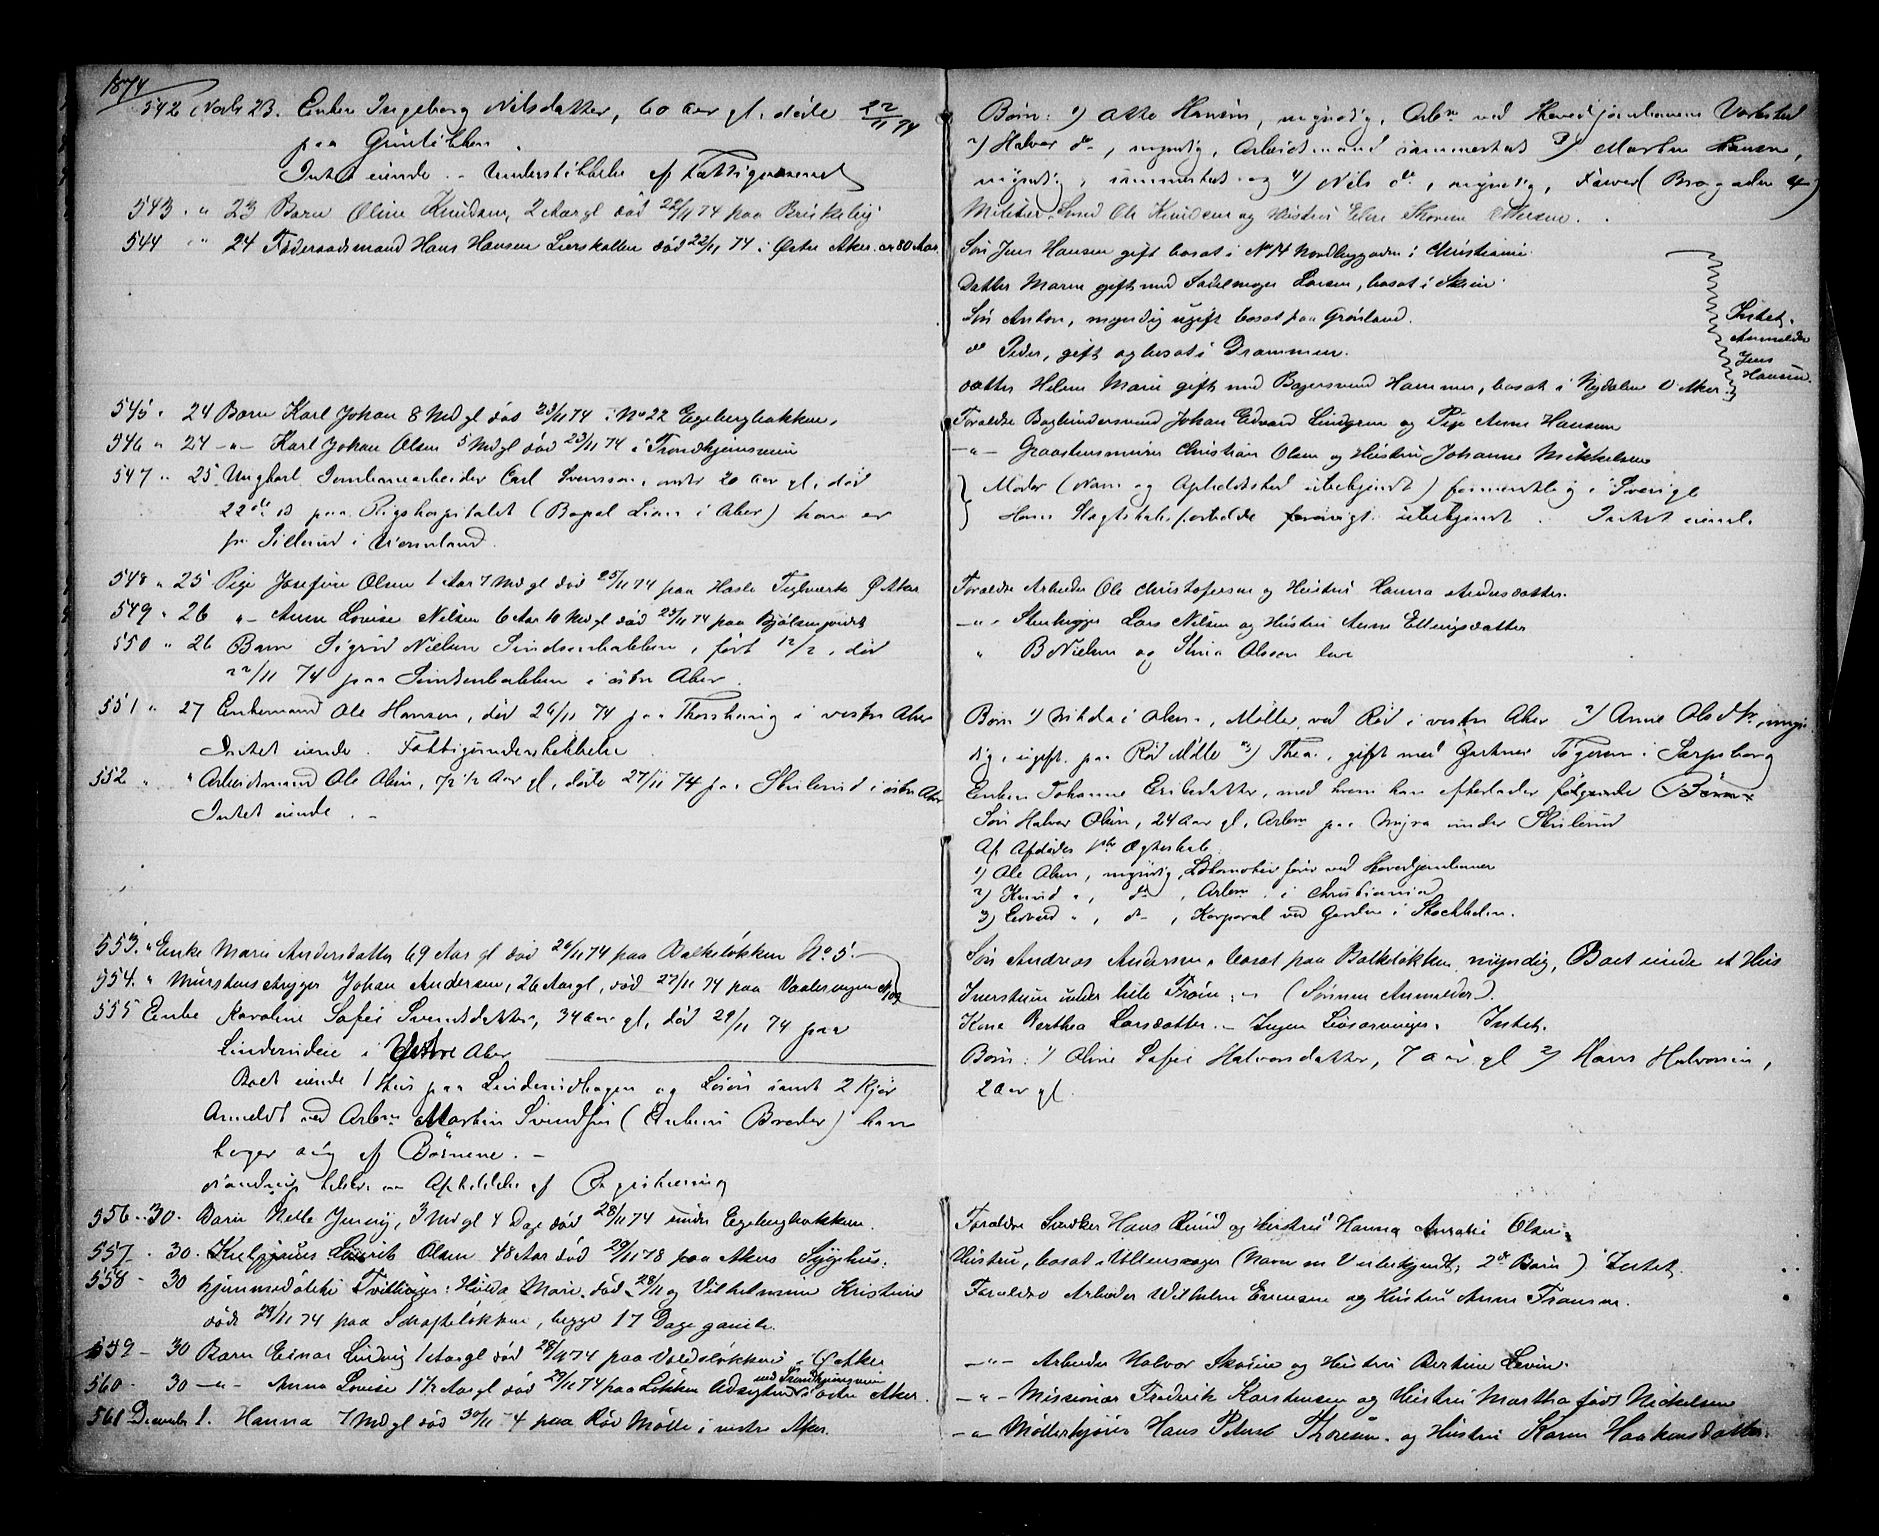 1874
542 Novbr 23. Enke Ingeborg Nilsdatter, 60 Aar gl. døde 22/11 74
paa Grünløkken.
Intet eiende. - Understøttelse af Fattigvæsenet
543 " 23 Barn Oline Knudsen, 2 Aar gl død 22/11 74 paa Briskeby
544 " 24 Føderaadsmand Hans Hansen Lierskallen død 22/11 74 i Østre Aker. ca 80 Aar.
545 " 24 Barn Karl Johan 8 Md gl død 23/11 74 i No 22 Egebergbakken.
546 " 24 -"- Karl Johan Olsen 5 Md gl død 23/11 74 i Trondhjemsveien
547 " 25 Ungkarl Jernbanearbeider Carl Svensson, 20 Aar gl. død
22de ds paa Rigshospitalet (Bopæl Lian i Aker) han er
fra i Vermland.
548 " 25 Pige Josefine Olsen 1 Aar 7 Md gl død 25/11 74 paa Hasle Teglværk Ø Aker
549 " 26 "- Anne Lovise Nilsen 6 Aar 10 Md gl død 23/11 74 paa Bjølsenjordet
550 " 26 Barn Sigrid Nielsen Sinsenbakken, født 12/2, død
22/11 74 paa Sinsenbakken i østre Aker.
551 " 27 Enkemand Ole Hansen, død 26/11 74 paa Thorshaug i vestre Aker
Intet eiende. Fattigunderstøttelse
552 " " Arbeidsmand Ole Olsen, 72 1/2 Aar gl, døde 27/11 74 paa i østre Aker
Intet eiende. -
553. " Enke Marie Andersdatter 69 Aar gl død 26/11 74 paa Balkeløkken No 5.
554. " Murstensstryger Johan Andersen, 26 Aar gl, død 27/11 74 paa Vaalerengen
555 Enke Karoline Sofie Svendsdatter, 34 Aar gl, død 29/11 74 paa
Linderudeie i Vestre Aker
Boet eiende 1 Hus paa Linderudhagen og Løsøre samt 2 Kjør
Anmeldt ved Arbm Martin Svendsen (Enkens Broder) han
tager sig af Børnene. -
556. " 30. Barn Nelle Jenny, 3 Md gl 4 Dage død 28/11 74 under Egebergbakken.
557 - 30. Laurits Olsen 48 Aar død 29/11 78 paa Akers Sygehus.
558 - 30 hjemmedøbte Tvillinger: Hulda Marie død 28/11 og Vilhelmine Kristine
død 29/11 74 paa Schafteløkken, begge 17 Dage gamle.
559 - 30 Barn Einar Ludvig 1 Aar gl død 28/11 74 paa Valdsløkken Ø Aker
ved Trondhjemsveien
560 - 30 -"- Anna Lovise 1 1/2 Aar gl død 29/11 74 paa Løkken Udsigten i østre Aker.
561 December 1. Hanna 7 Md gl død 30/11 74 paa Rød Mølle i vestre Aker.
Børn: 1) Otte Hansen, myndig, Arbm ved Hovedjernbanens Værksted
2) Halvor do, myndig, Arbeidsmand sammesteds 3) Martin Hansen,
myndig, sammesteds og 4) Nils do, myndig, Farver (Brogaden 4)
Militær Svend Ole Knudsen og Hustru
Søn Jens Hansen gift bosat i No 14 Nordbygaden i Christiania
Datter Maren gift med Sadelmager Larsen, bosat i Skien
Søn Anton, myndig ugift bosat paa Grønland.
do Peder, gift og bosat i Drammen.
Datter Helene Marie gift med Bagersvend Hammer, bosat i Nydalen V Aker
Intet.
Anmelder
Jens
Hansen.
Forældre Bogbindersvend Johan Edvard Lindgren og Pige Anne Hansen
-"- Graastensmurer Christian Olsen og Hustru Johanne Mikkelsen
Moder (Navn og Opholdssted ubekjendt) formentlig i Sverige
Hans Slægtskabsforholde forøvrigt ubekjendt. Intet eiend.
Forældre Arbeider Ole Christofersen og Hustru Hanna Andersdatter.
-"- Stenhugger Lars Nilsen og Hustru Anne Ellingsdatter
" B Nielsen og Stina Olsson
Børn 1) Nikolai Olsen, Møller ved Rød i vestre Aker 2) Anne Olsdtr, myn-
dig, ugift paa Rød Mølle 3) Thea, gift med Gartner i Sarpsborg
Enken Johanne Eriksdatter, med hvem han efterlader følgende Børn
Søn Halvor Olsen, 24 Aar gl, Arbm paa Myra under
Af Afdødes 1ste Ægteskab
1) Ole Olsen, myndig, Lokomotivfører ved Hovedjernbanen
2) Knud ", do, Arbm i Christiania
3) Edvard ", do, Korporal ved Garden i Stockholm.
Søn Andreas Andersen, bosat paa Balkeløkken myndig, Boet eiende et Hus
(Sønnen Anmelder).
Kone Berthea Larsdatter. - Ingen Livsarvinger. Intet.
Børn: 1) Oline Sofie Halvorsdatter, 7 Aar gl 2) Hans Halvorsen,
2 Aar gl.
Forældre Snedker Hans Ruud og Hustru Hanna Amalie Olsen.
Hustru, bosat i Ullensager (Navn er Ubekjendt; 2de Børn) Intet.
Forældre Arbeider Wilhelm Evensen og Hustru Anne Fransen.
-"- Arbeider Halvor Skoien og Hustru Bertine Levin.
-"- Missionær Frederik Karstensen og Hustru Martha født Nickelsen
-"- Møllerkjører Hans Petersen Thoresen og Hustru Karen Haakensdatter.